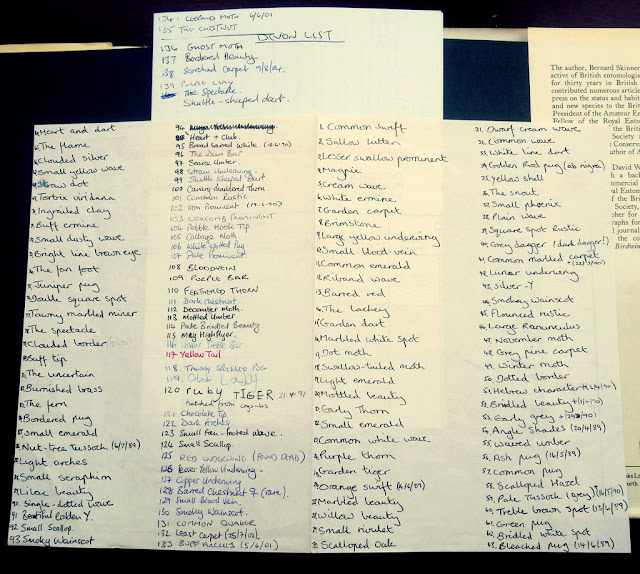 134 - LEOPARD MOTH 6/6/01
135 THE CHESTNUT
DEVON LIST
136 GHOST MOTH
137 Bordered Beauty
138 Scorched Carpet 9/8/04.
139 PURPLE CLAY
The Spectacle
Shuttle-shaped dart.
Heart and dart
The flame
Clouded silver
Small yellow wave
Straw dot
Tortrix viridana
Ingrailed clay
Buff ermine
Small dusty wave
Bright line brown eye
The fan foot
Juniper pug
Double square spot
Tawny marbled minor
The spectacle
Clouded border
Buff tip
The uncertain
Burnished brass
The fern
Bordered pug
Small emerald
Nut-tree Tussock (6/7/89)
Light arches
Small seraphim
Lilac beauty
90. Single-dotted wave
91. Beautiful Golden Y.
92 Small Scallop.
93 Smoky Wainscot
94
Heart + Club.
95 Broad barred White
96 The Dun Bar
97 Scarce Umber
98 Straw Underwing
99 Shuttle Shaped Dart
100 Canary shouldered Thorn
101 Common Rustic
102 Iron Prominent
103 COXCOMB PROMINENT
104 Pebble Hook Tip
105 Cabbage Moth
106 White spotted Pug
107 Pale Prominent
108 BLOODVEIN
109 PURPLE BAR
110 FEATHERED THORN
111 Dark Chestnut
112 December Moth
113 Mottled Umber
114 Pale Brindled Beauty
115 May Highflyer.
116 Bar
117 Yellow Tail
118. TAWNY SPECKLED PUG
119. Old Lady
120 ruby TIGER 21.4.91
hatched from
121 Chocolate Tip.
122 Dark Arches.
123 Small Fan-footed wave.
124 Small Scallop.
125 RED UNDERWING (FOUND DEAD)
126 Lesser Yellow Underwing -
127 Copper Underwing
128 Barred Chestnut ? (rare).
129 Small Blood Vein
130 Smoky Wainscot.
131 COMMON QUAKER
132 Least Carpet (25/7/00).
133 BUFF ARCHES (5/6/01)
1. Common swift
2. Sallow kitten
3. Lesser swallow prominent
4. Magpie
5. Cream wave
6. White ermine
7. Garden carpet
8. Brimstone
9. Large yellow underwing
10. Small blood-vein
11. Common emerald
12. Riband wave
13. Barred red
14. The lackey
15. Garden dart
16. Marbled white spot
17. Dot moth
18. Swallow-tailed moth
19. Light emerald
20. Mottled beauty
21. Early Thorn
22. Small emerald
23. Common white wave
24. Purple thorn
25. Garden tiger
26. Orange swift (4/6/89)
27. Marbled beauty
28. Willow beauty
29. Small rivulet
30. Scalloped Oak
31. Dwarf cream wave
32. Common wave
33. White line dart
34. Golden Rod pug (ab nigra)
35. Yellow shell
36. The snout
37. Small phoenix
38. Plain wave
39. Square spot Rustic
40. Grey dagger (dark dagger!)
41. Common marbled carpet
42. Lunar underwing
43. Silver-Y
44. Smokey Wainscot
45. Flounced rustic
46. Large Ranunculus
47. November moth
48. Grey pine carpet
49. Winter moth
50. Dotted border
51. Hebrew character
52. Brindled beauty
53. Early grey
54. Angle Shades (20/4/89)
55. Waved umber
56. Ash pug (16/5/89)
57. Common pug
58. Scalloped Hazel
59. Pale Tussock (grey)
60. Treble brown Spot (13/6/89)
61. Green pug
62. Bridled white Spot
63. Bleached pug (14/6/89)
The author, Bernard Skinner
active of British entomologis
for thirty years in British
contributed numerous article
press on the status and habit
and new species to the Britis
President of the Amateur Ent
Fellow of the Royal Entom
the Briti
Society a
Conservat
thor of A
David W
h a back
mmercial
of the B
Society,
pher for
raphs for
l journal
the co
Birdwin